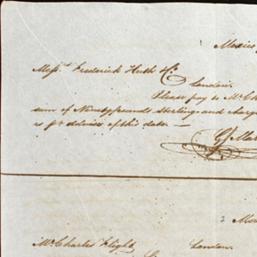 Mexico
Messrs. Frederick Huth & Co.
London.
Please pay to Mr Ch
sum of Ninety pounds Sterling and charge
as pr advice of this date. —
Mr Charles Flight,
London.